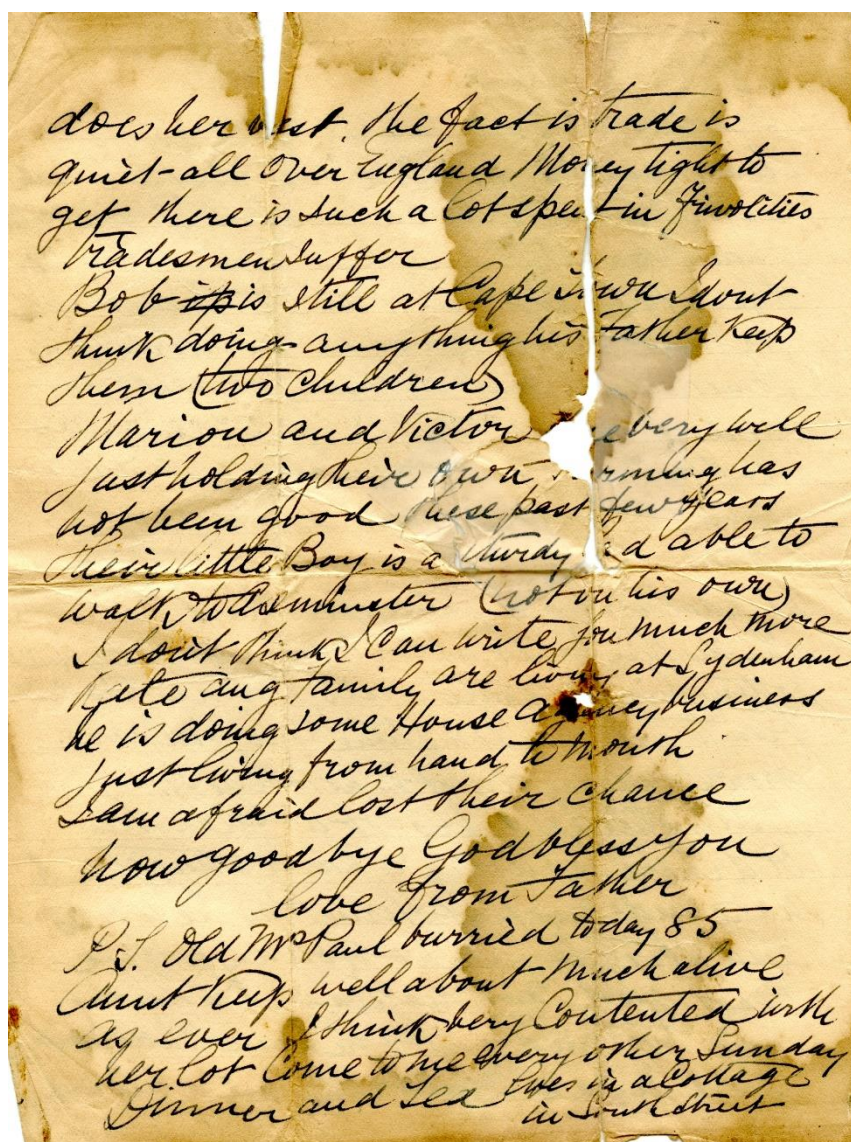 does her best. the fact is trade is
quiet - all over England Money tight to
get there is such a lot spent in Frivolities
tradesmen suffer
Bob is is still at Cape Town I dont
think doing anything his Father Keep
them (two children)
Marion and Victor very well
just holding their own has
not been good these past few years
their little Boy is a sturdy able to
walk to Axminster (not on his own)
I dont think I can write you much more
Kate and Family are living at Sydenham
he is doing some House Agency business
just living from hand to mouth
I am afraid lost their chance
now good bye God bless you
love from Father
P.S. Old Mr Paul burried today 85
Aunt Keep well about much alive
as ever I think very Contented with
her lot Come to me every other Sunday
Dinner and Tea lives in a Cottage
in South Street